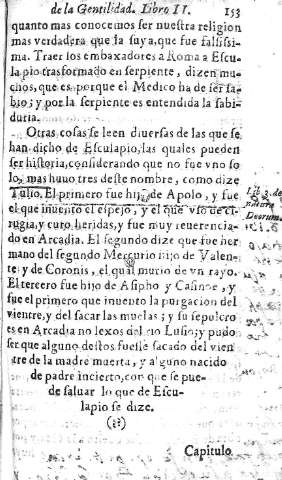 de la Gentilidad. Libro II. 153
quanto mas conocemos ser nuestra religion
mas verdadera que la suya, que fue falsissi-
ma. Traer los embaxadores a Roma a Escu-
lapio trasformado en serpiente, dizen mu-
chos, que es porque el Medico ha de ser sa-
bio; y por la serpiente es entendida la sabi-
duria.
Otras cosas se leen diuersas de las que se
han dicho de Esculapio, las quales pueden
ser historia, considerando que no fue vno so
lo, mas huuo tres deste nombre, como dize
Tulio. El primero fue hijo de Apolo, y fue
el que inuento el espejo, y el que vso de ci-
rugia, y curo heridas, y fue muy reuerencia-
do en Arcadia. El segundo dize que fue her
mano del segundo Mercurio hijo de Valen-
te, y de Coronis, el qual murio de vn rayo.
El tercero fue hijo de Asipho y Casinoe, y
fue el primero que inuento la purgacion del
vientre, y del sacar las muelas; y su sepulcro
es en Arcadia no lexos del rio Lusio; y pudo
ser que alguno destos fuesse sacado del vien
tre de la madre muerta, y alguno nacido
de padre incierto, con que se pue-
de saluar lo que de Escu-
lapio se dize.
(::)
Lib. 3. de
natura
Deorum.
Capitulo